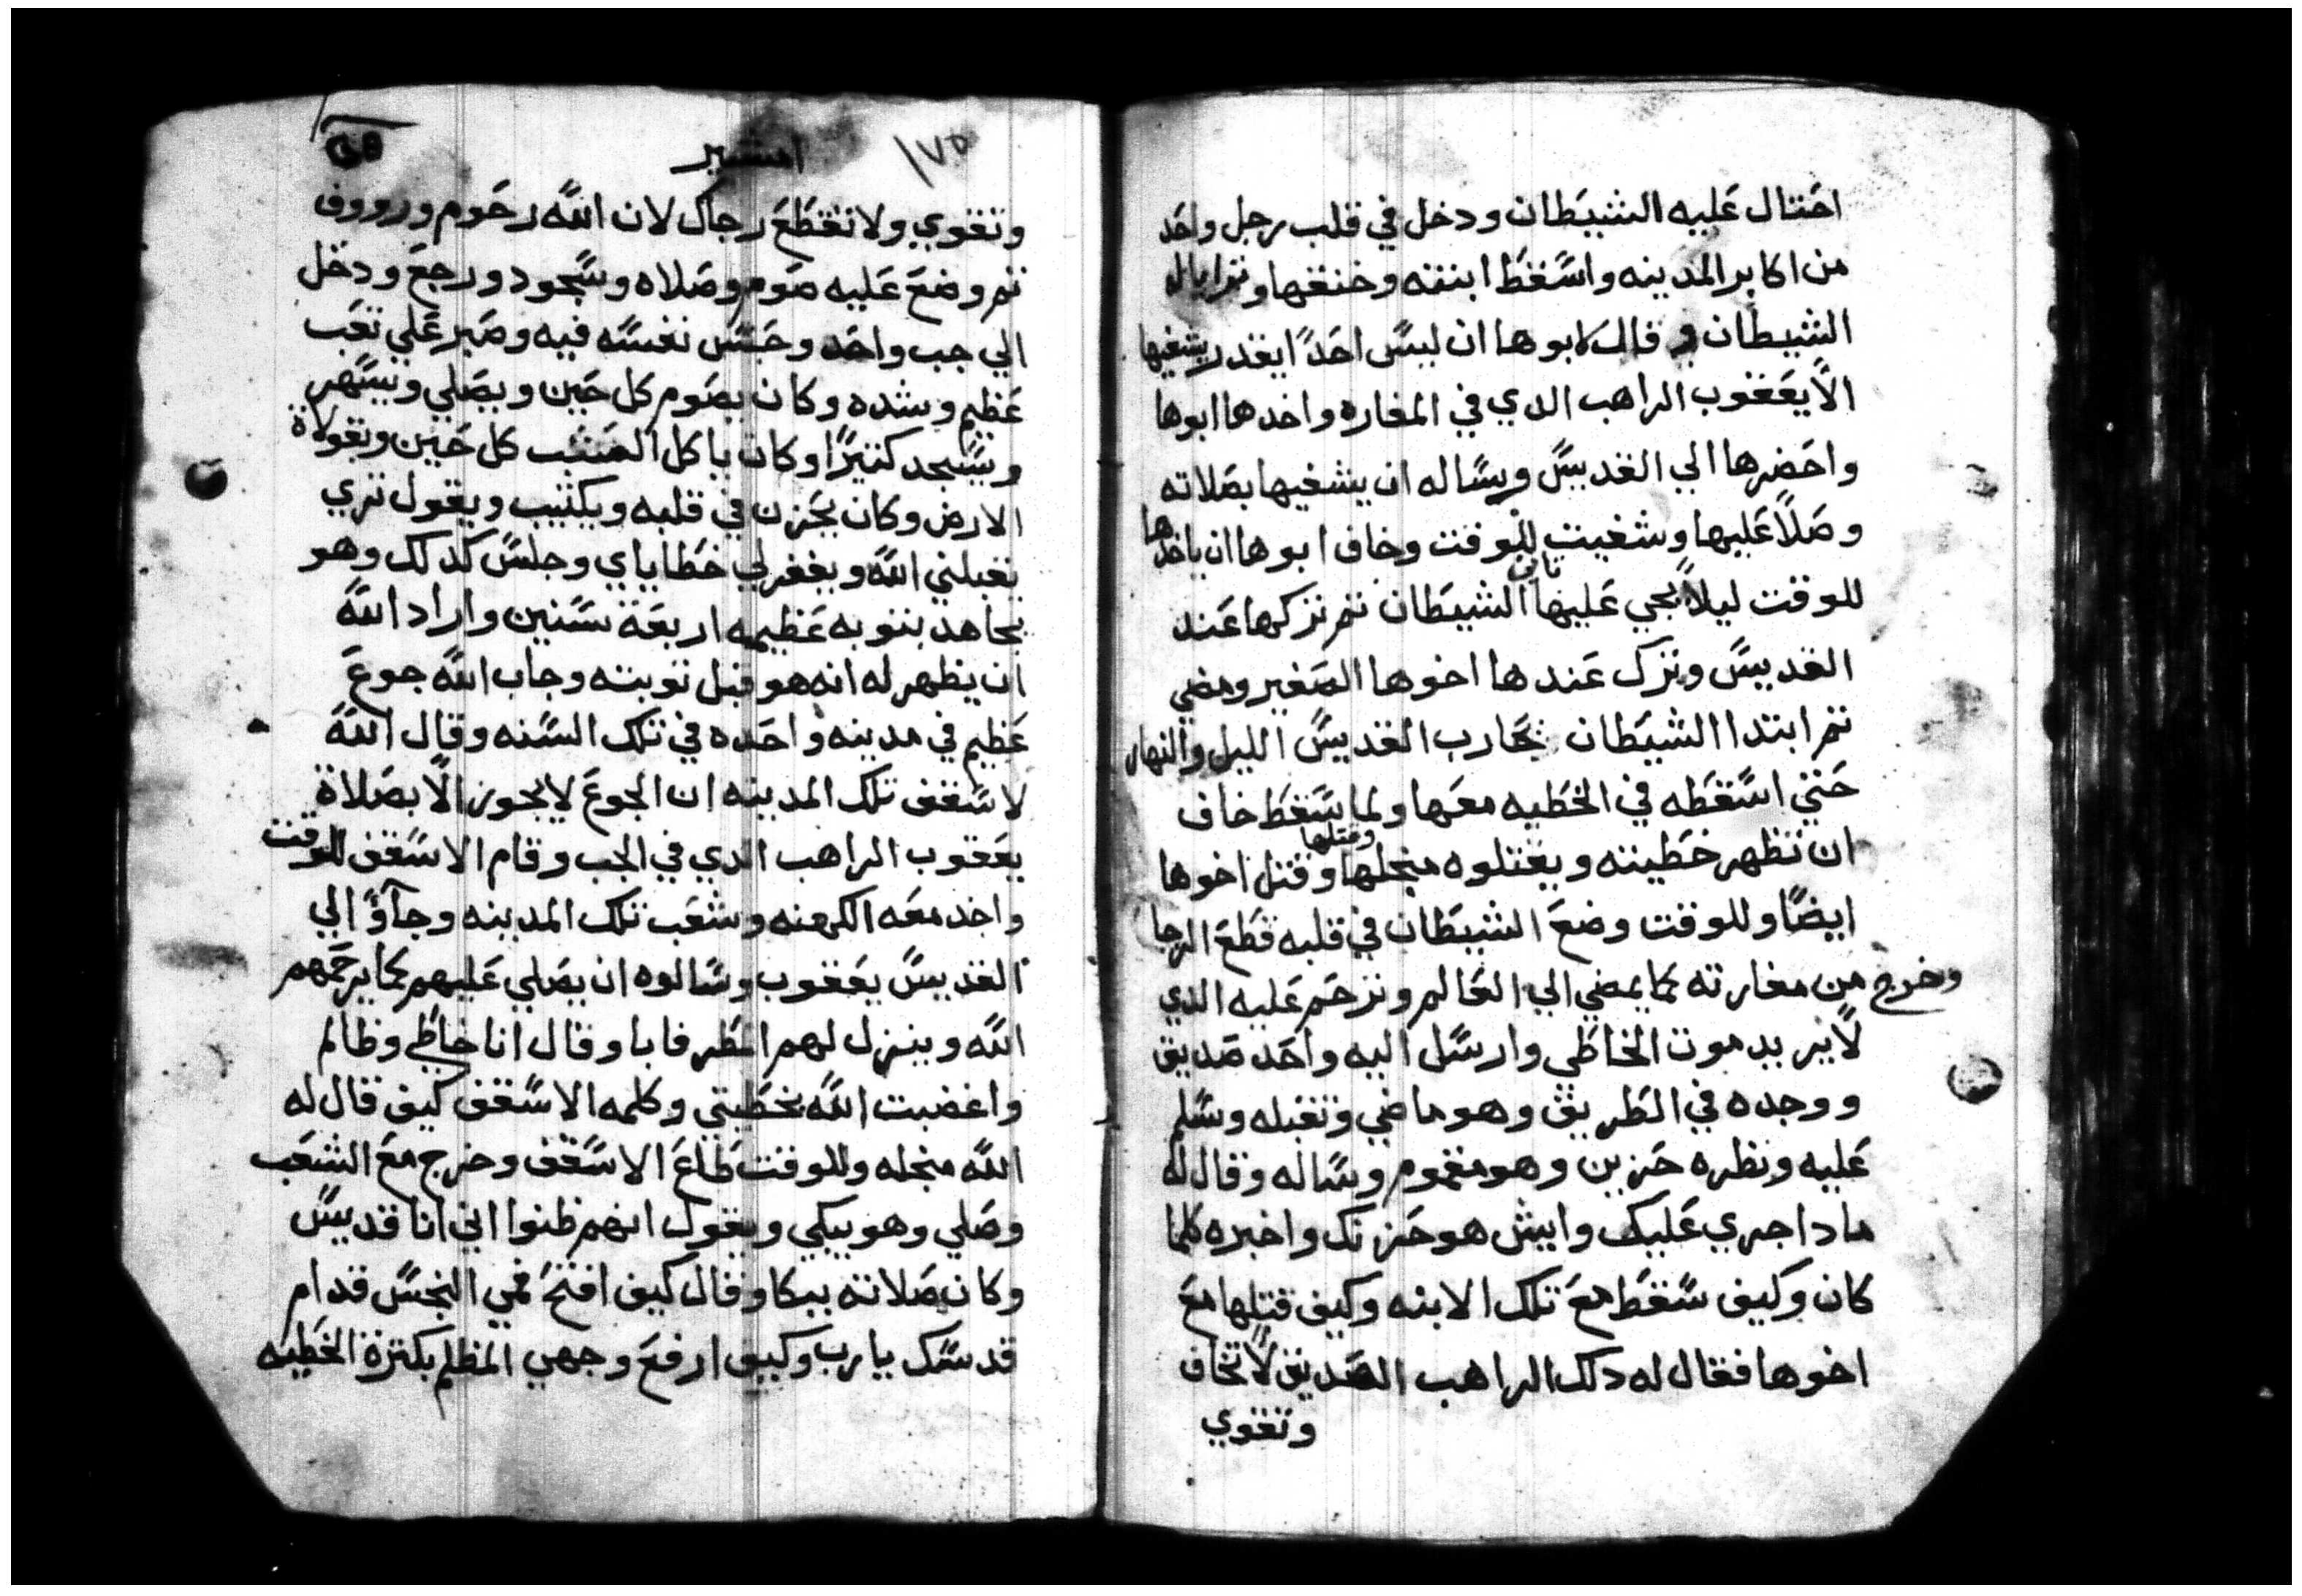 احتال عليه الشيطان ودخل في قلب رجل واحد
من اكابر المدينه واسقط ابنته وخنقها وترايا لل
الشيطان و قال لابوها ان ليس احدًا يقدر يشفيها
الّا يعقوب الراهب الدي في المغاره واخدها ابوها
واحضرها الي القديس وساله ان يشفيها بصلاته
وصلّا عليها وشفيت للوقت وخاف ابوها ان ياخدها
للوقت ليلًا يجي عليها تاني الشيطان تم تركها عند
القديس وترك عندها اخوها الصغير ومضي
تم ابتدا الشيطان يحارب القديس الليل والنهار
حتي اسقطه في الخطيه معها ولما سقط خاف
ان تظهر خطيته ويقتلوه منجلها وقتلها وقتل اخوها
ايضًا وللوقت وضع الشيطان في قلبه قطع الرجا
وخرج من مغارته كما يمضي الي العالم وترحم عليه الدي
لّا يريد موت الخاطي وارسل اليه واحد صديق
ووجده في الطريق وهو ماضي وتقبله وسلم
عليه ونظره حزين وهو مغموم وساله وقال له
مادا جري عليك وايش هو حزنك واخبره كلما
كان وكيف سقط مع تلك الابنه وكيف قتلها مع
اخوها فقال له دلك الراهب الصديق لًا تخاف
وتقوي
١٧٥
امشير
وتقوي ولا تقطع رجاك لان الله رحوم وروف
تم وضع عليه صوم وصلاه وسجود ورجع ودخل
الي جب واحد وحبس نفسه فيه وصبر علي تعب
عظيم وشده وكان يصوم كل حين ويصلي ويسهر
ويسجد كتيرًا وكان ياكل العشب كل حين وبقولاة
الارض وكان يحزن في قلبه ويكتيب ويقول تري
يقبلني الله ويغفر لي خطاياي وجلس كدلك وهو
يجاهد بتوبه عظيمه اربعة سنين واراد الله
ان يظهر له انه هو قبل توبته وجاب الله جوع
عظيم في مدينه واحده في تلك السنه وقال الله
لاسقف تلك المدينه ان الجوع لا يجوز الّا بصلاة
يعقوب الراهب الدي في الجب وقام الاسقف للوقت
واخد معه الكهنه وشعب تلك المدينه وجآؤا الي
القديس يعقوب وسالوه ان يصلي عليهم كما يرحمهم
الله وينزل لهم المطر فابا وقال انا خاطي وظالم
واغضبت الله بخطيتي وكلمه الاسقف كيف قال له
الله منجله وللوقت طاع الاسقف وخرج مع الشعب
وصلي وهو يبكي ويقول انهم ظنوا اني انا قديس
وكان صلاته ببكا وقال كيف افتح فمي النجس قدام
قدسك يارب وكيف ارفع وجهي المظلم بكترة الخطيه